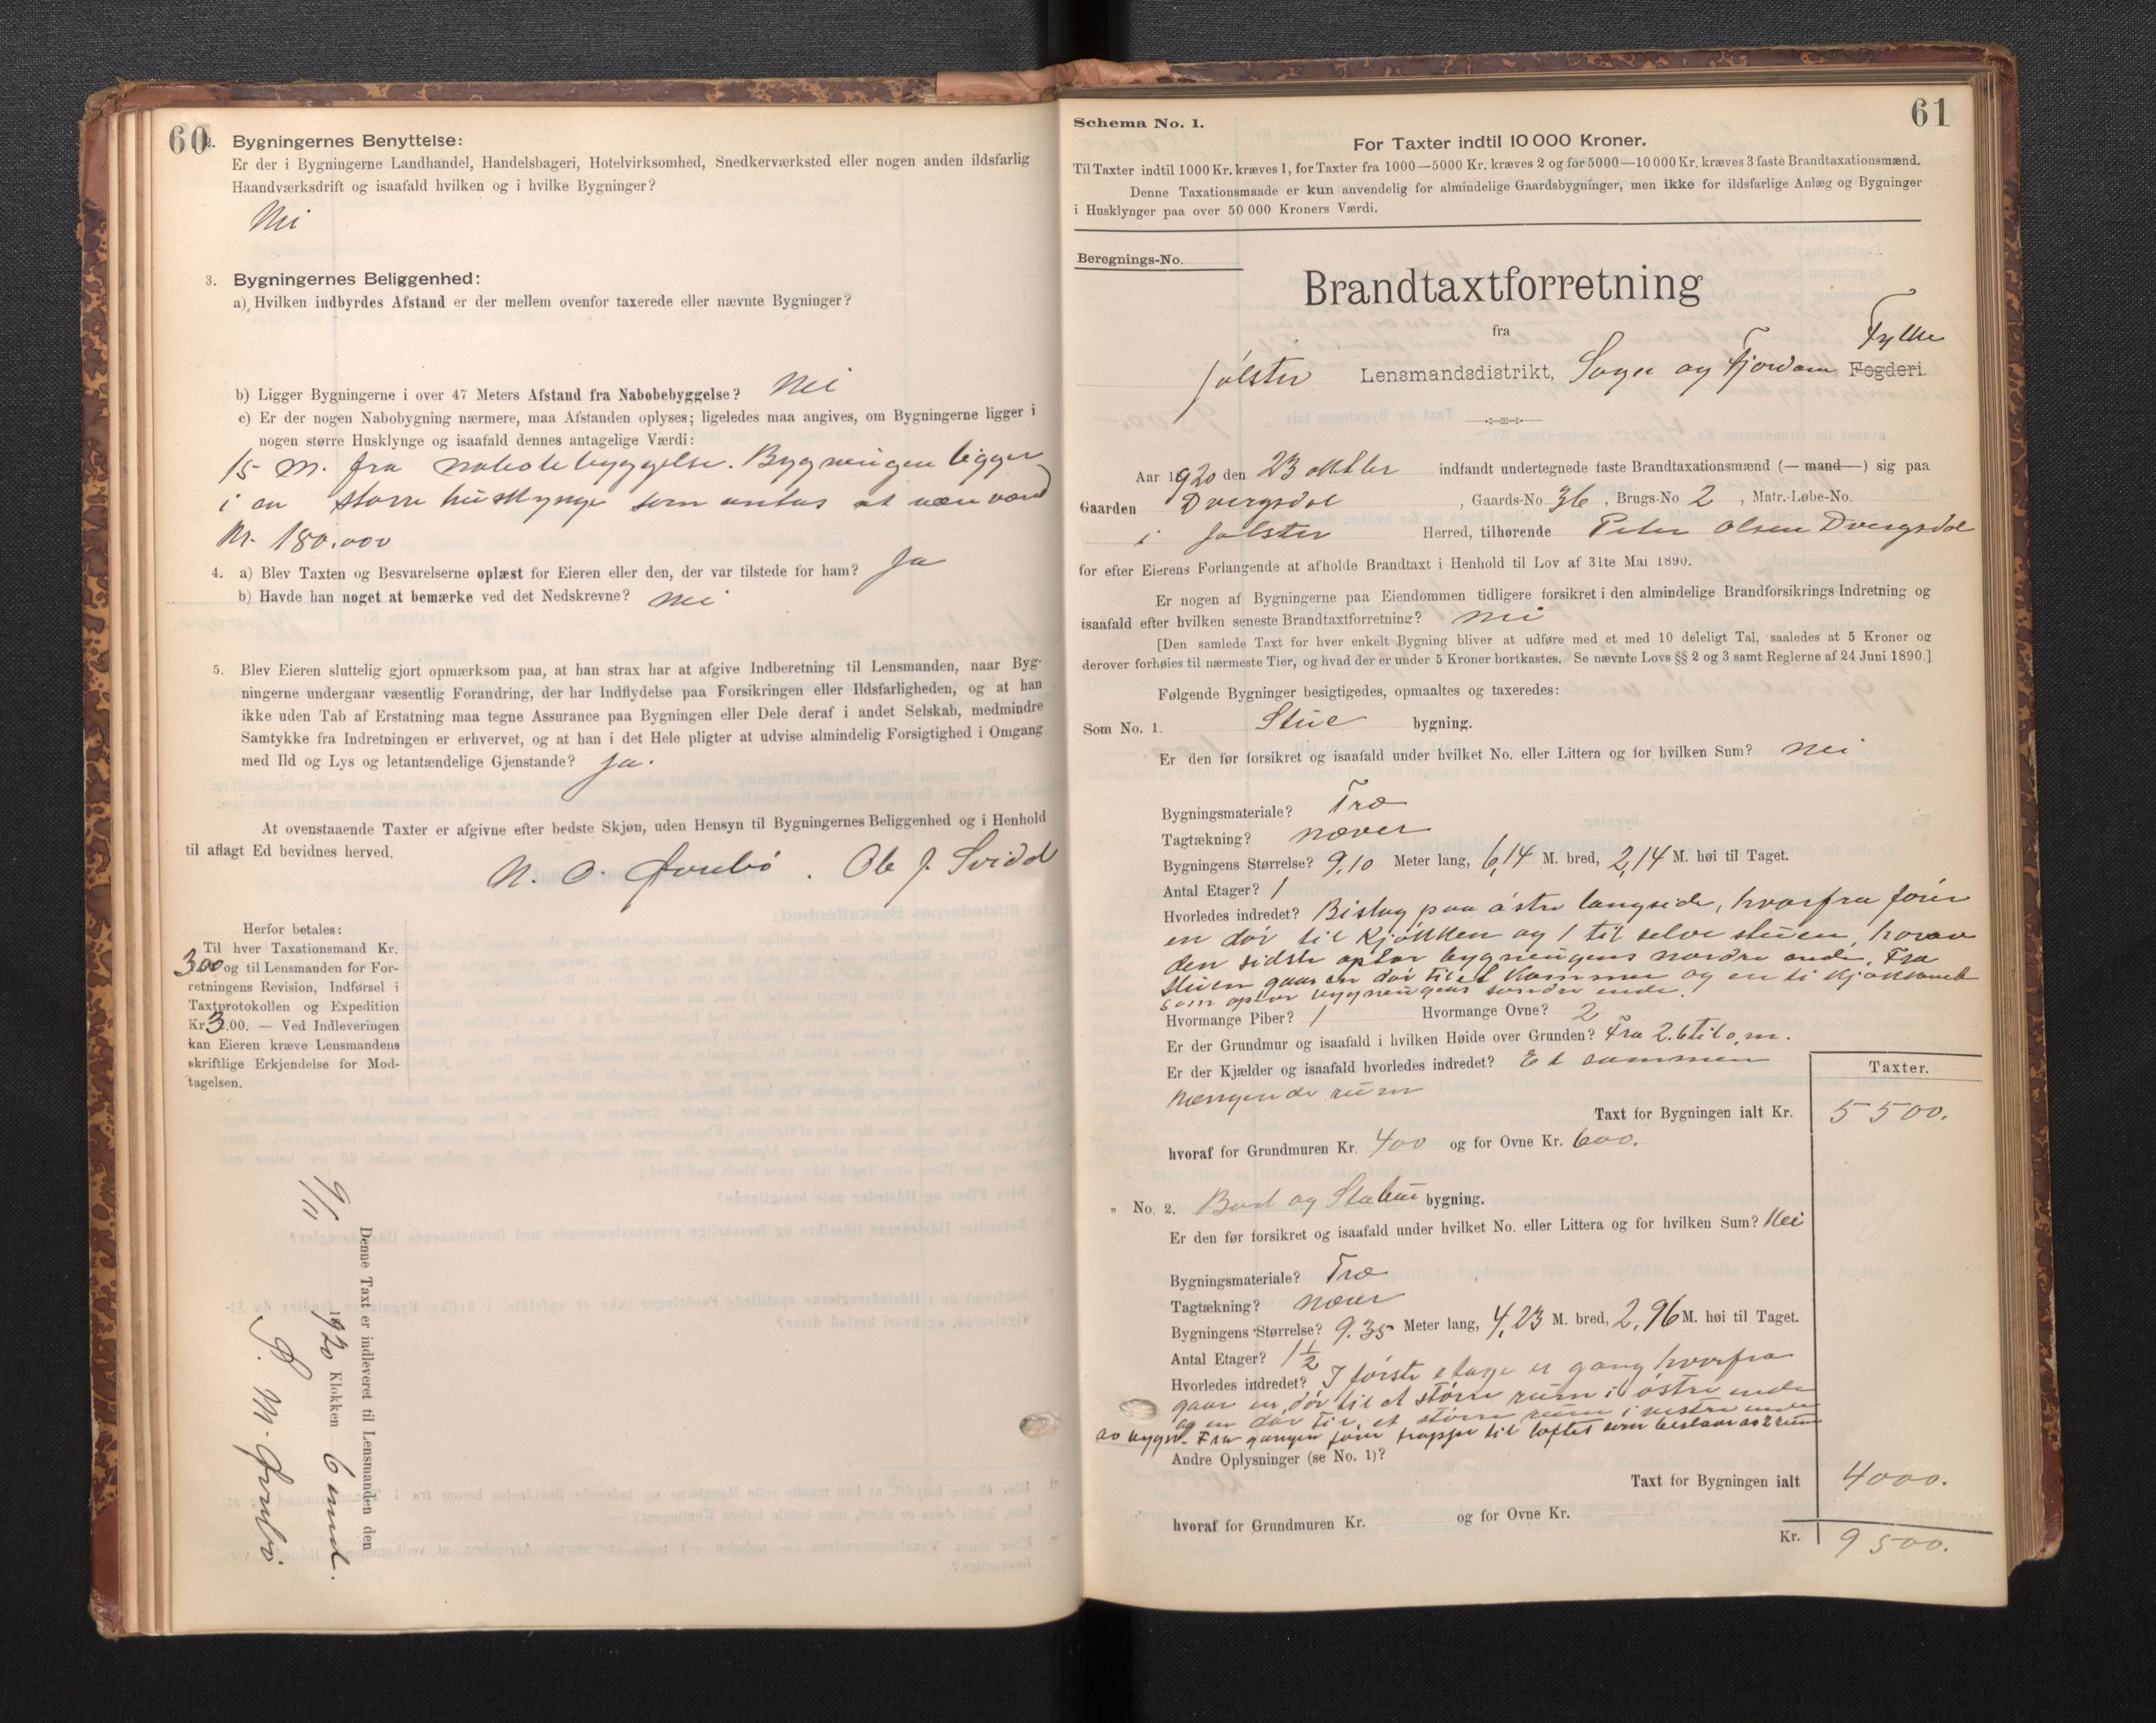 60
2. Bygningernes Benyttelse:
Er der i Bygningerne Landhandel, Handelsbageri, Hotelvirksomhed, Snedkerværksted eller nogen anden ildsfarlig
Haandværksdrift og isaafald hvilken og i hvilke Bygninger?
Nei
3. Bygningernes Beliggenhed:
a) Hvilken indbyrdes Afstand er der mellem ovenfor taxerede eller nævnte Bygninger?
b) Ligger Bygningerne i over 47 Meters Afstand fra Nabobebyggelse? Nei
c) Er der nogen Nabobygning nærmere, maa Afstanden oplyses; ligeledes maa angives, om Bygningerne ligger i
nogen større Husklynge og isaafald dennes antagelige Værdi:
15 m. fra nabobebyggelse. Bygningen ligger
i en større husklynge som antas at være værd
Kr. 180.000
4. a) Blev Taxten og Besvarelserne oplæst for Eieren eller den, der var tilstede for ham? Ja
b) Havde han noget at bemærke ved det Nedskrevne? Nei
5. Blev Eieren sluttelig gjort opmærksom paa, at han strax har at afgive Indberetning til Lensmanden, naar Byg-
ningerne undergaar væsentlig Forandring, der har Indflydelse paa Forsikringen eller Ildsfarligheden, og at han
ikke uden Tab af Erstatning maa tegne Assurance paa Bygningen eller Dele deraf i andet Selskab, medmindre
Samtykke fra Indretningen er erhvervet, og at han i det Hele pligter at udvise almindelig Forsigtighed i Omgang
med Ild og Lys og letantændelige Gjenstande? Ja.
At ovenstaaende Taxter er afgivne efter bedste Skjøn, uden Hensyn til Bygningernes Beliggenhed og i Henhold
til aflagt Ed bevidnes herved.
N. O. . Ole J. Svidal
Herfor betales:
Til hver Taxationsmand Kr.
3.00 og til Lensmanden for For-
retningens Revision, Indførsel i
Taxtprotokollen og Expedition
Kr. 3.00. — Ved Indleveringen
kan Eieren kræve Lensmandens
skriftlige Erkjendelse for Mod-
tagelsen.
Denne Taxt er indleveret til Lensmanden den
9/11 1920 Klokken 6 emd.
61
Schema No. 1.
For Taxter indtil 10 000 Kroner.
Til Taxter indtil 1000 Kr. kræves 1, for Taxter fra 1000—5000 Kr. kræves 2 og for 5000—10 000 Kr. kræves 3 faste Brandtaxationsmænd.
Denne Taxationsmaade er kun anvendelig for almindelige Gaardsbygninger, men ikke for ildsfarlige Anlæg og Bygninger
i Husklynger paa over 50 000 Kroners Værdi.
Beregnings-No.
Brandtaxtforretning
fra
Fylke
Jølster Lensmandsdistrikt, Sogn og Fjordane Fogderi.
Aar 1920 den 23 oktber indfandt undertegnede faste Brandtaxationsmænd (— mand —) sig paa
Gaarden Dvergsdal, Gaards-No. 36, Brugs-No. 2, Matr.-Løbe-No.
i Jølster Herred, tilhørende Peter Olsen Dvergsdal
for efter Eierens Forlangende at afholde Brandtaxt i Henhold til Lov af 31te Mai 1890.
Er nogen af Bygningerne paa Eiendommen tidligere forsikret i den almindelige Brandforsikrings-Indretning og
isaafald efter hvilken seneste Brandtaxtforretning? Nei
[Den samlede Taxt for hver enkelt Bygning bliver at udføre med et med 10 deleligt Tal, saaledes at 5 Kroner og
derover forhøies til nærmeste Tier, og hvad der er under 5 Kroner bortkastes. Se nævnte Lovs §§ 2 og 3 samt Reglerne af 24 Juni 1890.]
Følgende Bygninger besigtigedes, opmaaltes og taxeredes:
Som No. 1. Stue bygning.
Er den før forsikret og isaafald under hvilket No. eller Littera og for hvilken Sum? Nei
Bygningsmateriale? Træ
Tagtækning? næver
Bygningens Størrelse? 9,10 Meter lang, 6,14 M. bred, 2,14 M. høi til Taget.
Antal Etager? 1
Hvorledes indredet? Bislag paa østre langside, hvorfra fører
en dør til kjøkken og 1 til selve stuen, hvorav
den sidste optar bygningens nordre ende. Fra
stuen gaar en dør til et kammer og en til kjøkkenet
som optar bygningens søndre ende.
Hvormange Piber? 1 Hvormange Ovne? 2
Er der Grundmur og isaafald i hvilken Høide over Grunden? Fra 2.6 til 0,m.
Er der Kjælder og isaafald hvorledes indredet? Et sammen
hængende rum
Taxter.
Taxt for Bygningen ialt Kr. 5500.
hvoraf for Grundmuren Kr. 400 og for Ovne Kr. 600.
„ No. 2. Bod og Stabur bygning.
Er den før forsikret og isaafald under hvilket No. eller Littera og for hvilken Sum? Nei
Bygningsmateriale? Træ
Tagtækning? næver
Bygningens Størrelse? 9.35 Meter lang, 4,23 M. bred, 2,96 M. høi til Taget.
Antal Etager? 1 1/2
Hvorledes indredet? I første etage er gang hvorfra
gaar en dør til et større rum i østre ende
og en dør til et større rum i vestre ende
av bygn. Fra gangen fører trappe til loftet som bestaar av 2 rum
Andre Oplysninger (se No. 1)?
Taxt for Bygningen ialt 4000.
hvoraf for Grundmuren Kr. og for Ovne Kr.
Kr. 9500.